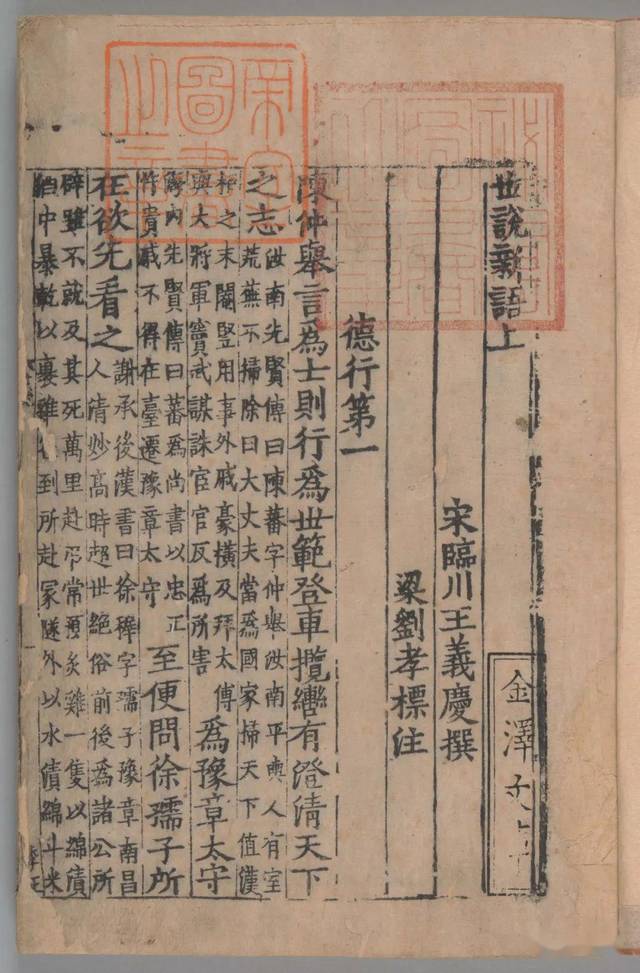 世說新語上
金澤文庫
宋臨川王義慶撰
梁劉孝標注
德行第一
陳仲舉言爲士則行爲世範登車攬轡有澄清天下
之志
汝南先賢傳曰陳蕃字仲舉汝南平輿人有室
荒蕪不掃除曰大丈夫當爲國家掃天下值漢
桓之末閹竪用事外戚豪橫及拜太傅
與大將軍竇武謀誅宦官反爲所害
爲豫章太守
海內先賢傳曰蕃爲尚書以忠正
忤貴戚不得在臺遷豫章太守
至便問徐孺子所
在欲先看之
謝承後漢書曰徐穉字孺子豫章南昌
人清妙高時超世絕俗前後爲諸公所
辟雖不就及其死萬里赴弔常預炙雞一隻以綿漬
酒中暴乾以裹雞到所赴冢隧外以水漬綿斗米
帝室圖書之章